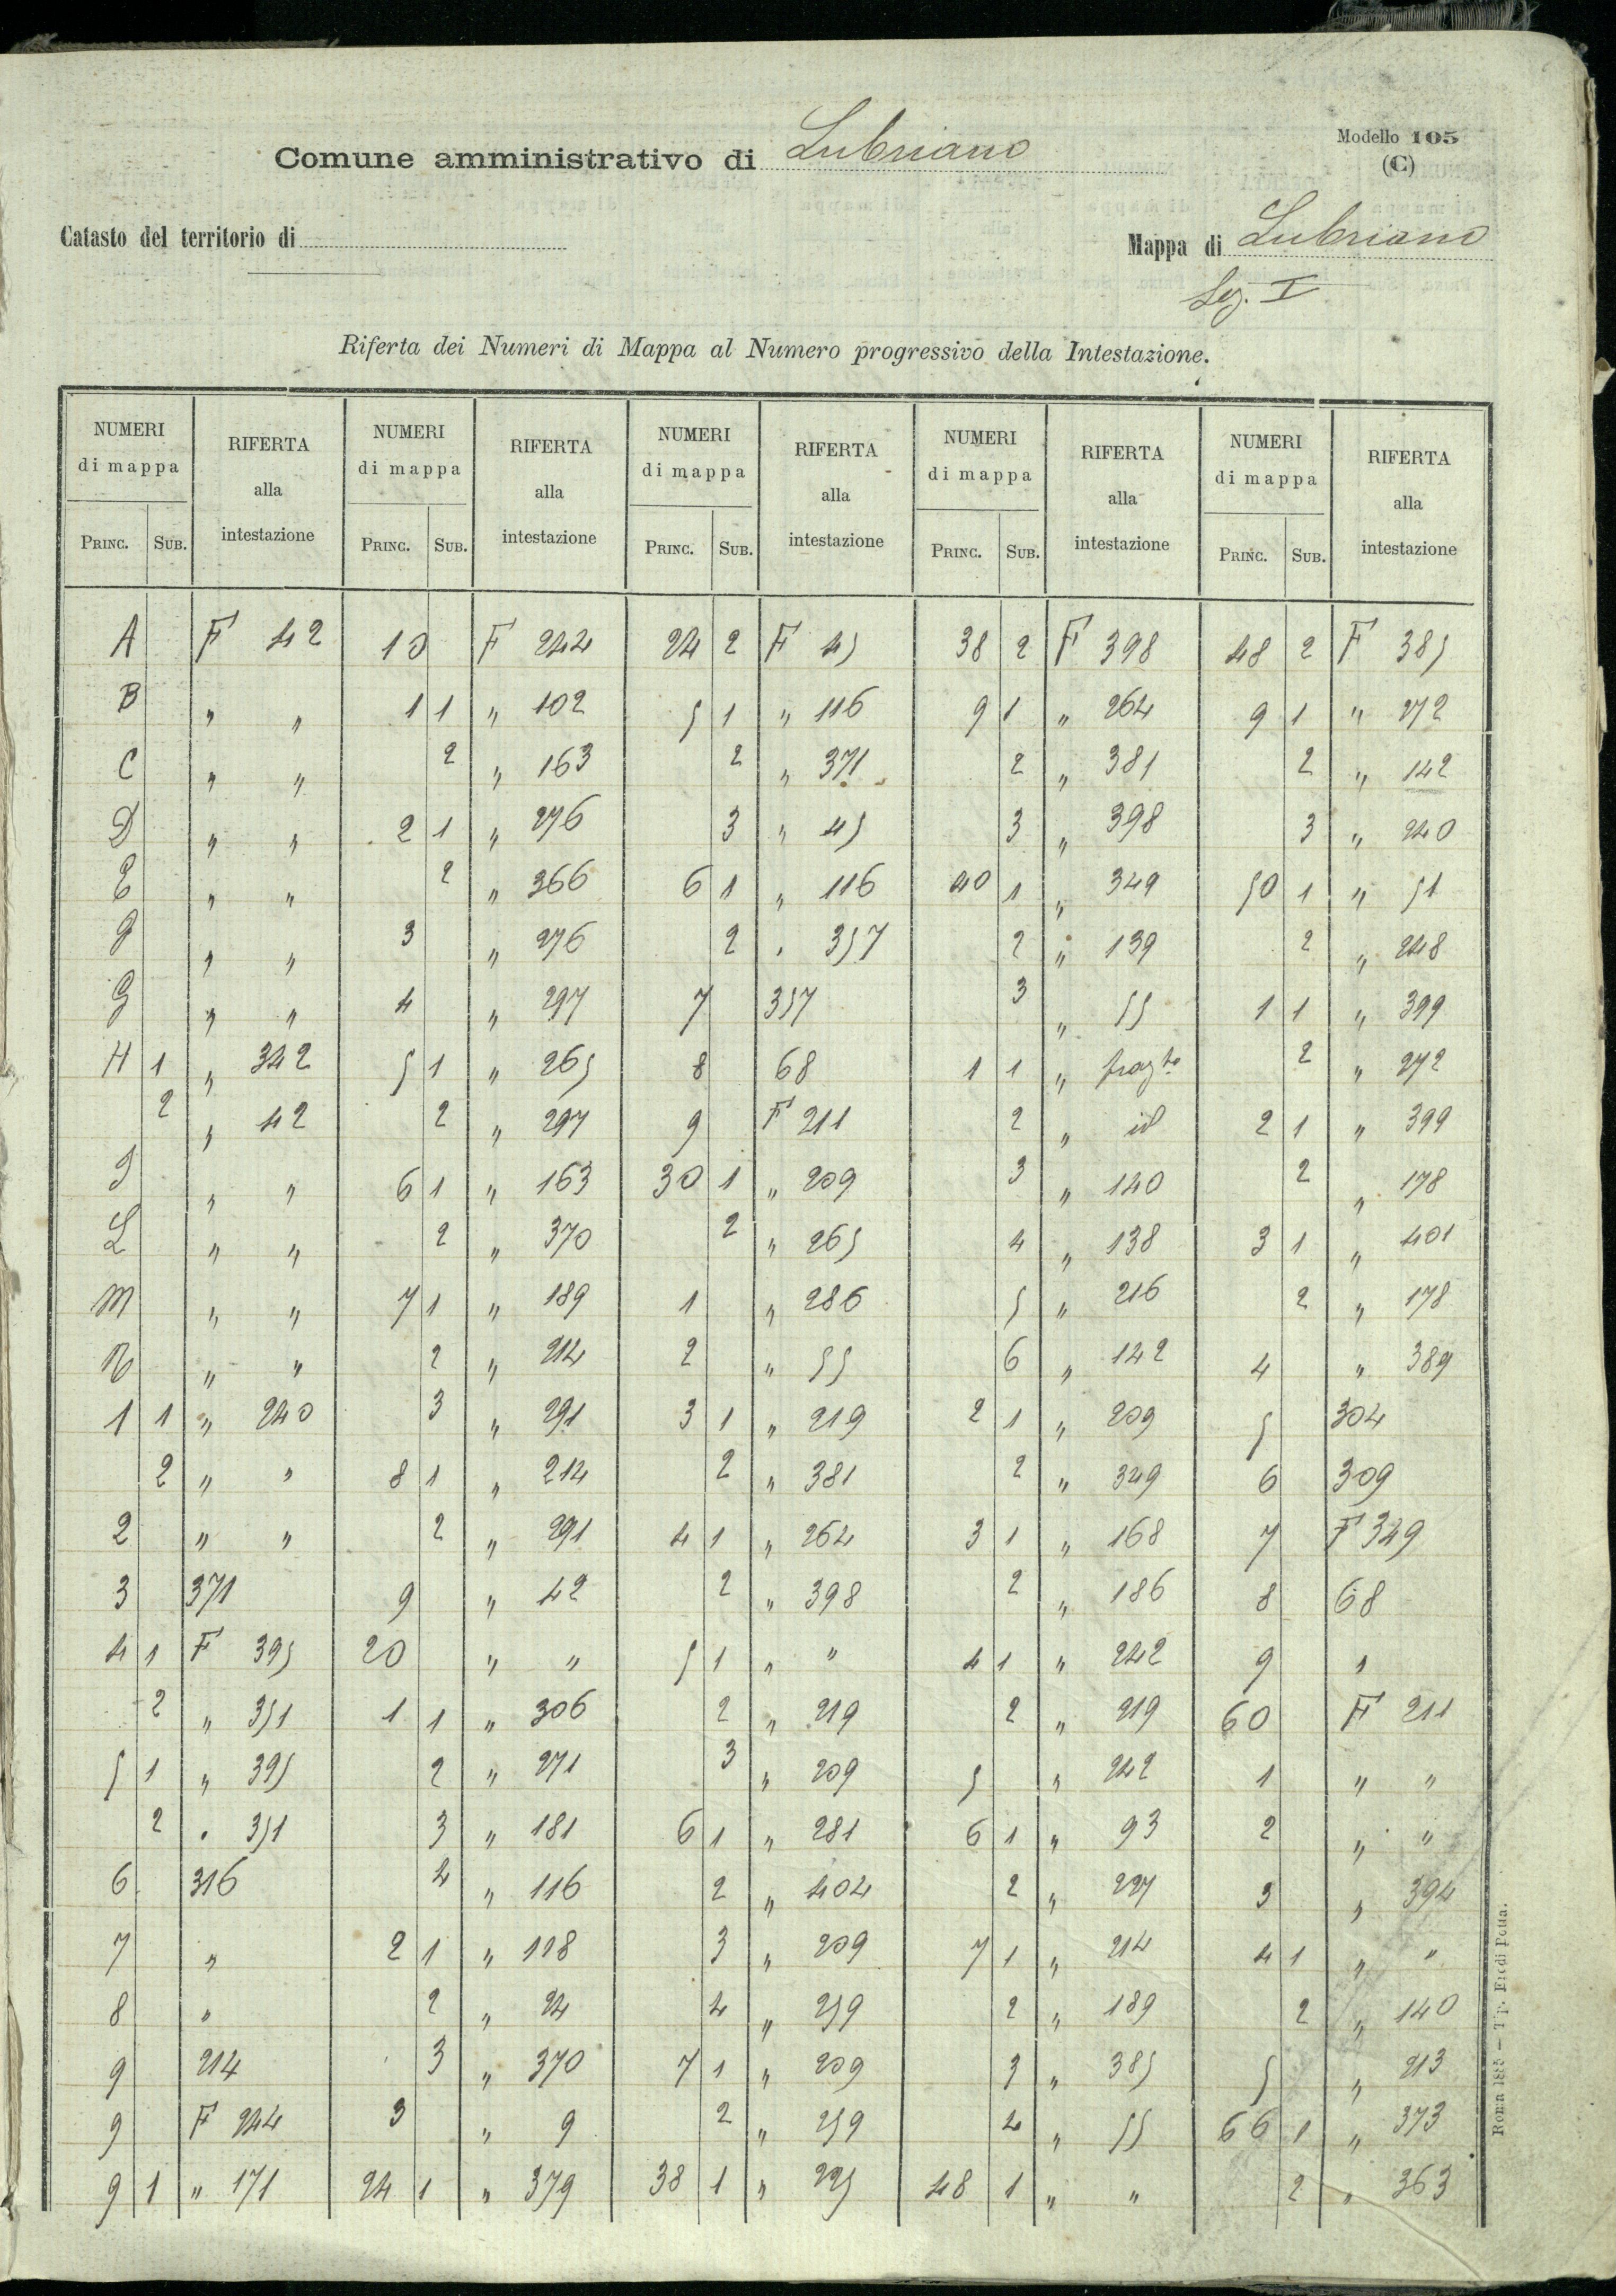 Modello 105
(C)
Comune amministrativo di Lubriano
Catasto del territorio di
Mappa di Lubriano
Sez. I
Riferta dei Numeri di Mappa al Numero progressivo della Intestazione.
NUMERI di mappa RIFERTA alla intestazione NUMERI di mappa RIFERTA alla intestazione NUMERI di mappa RIFERTA alla intestazione NUMERI di mappa RIFERTA alla intestazione NUMERI di mappa RIFERTA alla intestazione
PRINC. SUB. PRINC. SUB. PRINC. SUB. PRINC. SUB. PRINC. SUB.
A F 42 10 F 244 24 2 F 45 38 2 F 398 48 2 F 385
B " " 1 1 " 102 5 1 " 116 9 1 " 264 9 1 " 272
C " " 2 " 163 2 " 371 2 " 381 2 " 142
D " " 2 1 " 276 3 " 45 3 " 398 3 " 240
E " " 2 " 366 6 1 " 116 40 1 " 349 50 1 " 51
" " 3 " 276 2 " 357 2 " 139 2 " 248
G " " 4 " 297 7 357 3 " 55 1 1 " 399
H 1 " 342 5 1 " 265 8 68 1 1 " 2 " 272
2 " 42 2 " 297 9 F 211 2 " id 2 1 " 399
I " " 6 1 " 163 30 1 " 209 3 " 140 2 " 178
L " " 2 " 370 2 " 265 4 " 138 3 1 " 401
M " " 7 1 " 189 1 " 286 5 " 216 2 " 178
N " " 2 " 214 2 " 55 6 " 142 4 " 389
1 1 " 240 3 " 291 3 1 " 219 2 1 " 209 5 304
2 " " 8 1 " 214 2 " 381 2 " 349 6 309
2 " " 2 " 291 4 1 " 264 3 1 " 168 7 F 349
3 371 9 " 42 2 " 398 2 " 186 8 68
4 1 F 395 20 " " 5 1 " " 4 1 " 242 9 "
2 " 351 1 1 " 306 2 " 219 2 " 219 60 F 211
5 1 " 395 2 " 271 3 " 209 5 " 242 1 " "
2 " 351 3 " 181 6 1 " 281 6 1 " 93 2 " "
6 316 4 " 116 2 " 404 2 " 227 3 " 394
7 " 2 1 " 118 3 " 209 7 1 " 214 4 1 " "
8 " 2 " 24 4 " 259 2 " 189 2 " 140
9 214 3 " 370 7 1 " 209 3 " 385 5 " 213
9 F 244 3 " 9 2 " 259 4 " 55 66 1 " 373
9 1 " 171 24 1 " 379 38 1 " 225 48 1 " " 2 " 363
Roma 188 — Tip. Eredi Botta.